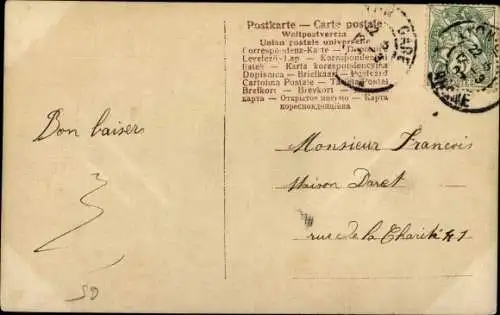 Postkarte - Carte postale
Weltpostverein
Union postale universelle
Correspondenz-Karte -
Levelező-Lap - Korrespondenz
listek - Karta korespondencyjna
Dopisnica - Briefkaart -
Cartolina Postale -
Brefkort - Brevkort -
карта - Открытое письмо - Карта
кореспонденціина
GARE
RHONE
Bon baisers
Monsieur Francois
Maison Daret
rue de la Charité 41
50